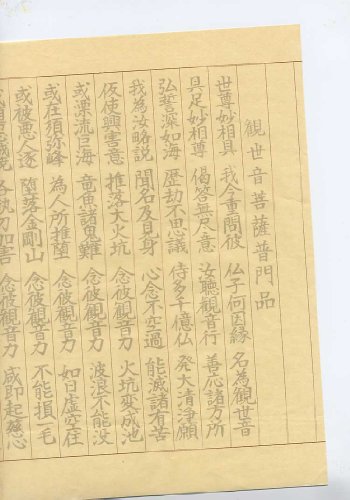 觀世音菩薩普門品
世尊妙相具 我今重問彼 仏子何因縁 名為觀世音
具足妙相尊 偈答無尽意 汝聴觀音行 善応諸方所
弘誓深如海 歴劫不思議 侍多千億仏 発大清淨願
我為汝略説 聞名及見身 心念不空過 能滅諸有苦
仮使興害意 推落大火坑 念彼觀音力 火坑変成池
或漂流巨海 竜魚諸鬼難 念彼觀音力 波浪不能没
或在須弥峰 為人所推堕 念彼觀音力 如日虚空住
或被悪人逐 堕落金剛山 念彼觀音力 不能損一毛
念彼觀音力 咸即起慈心